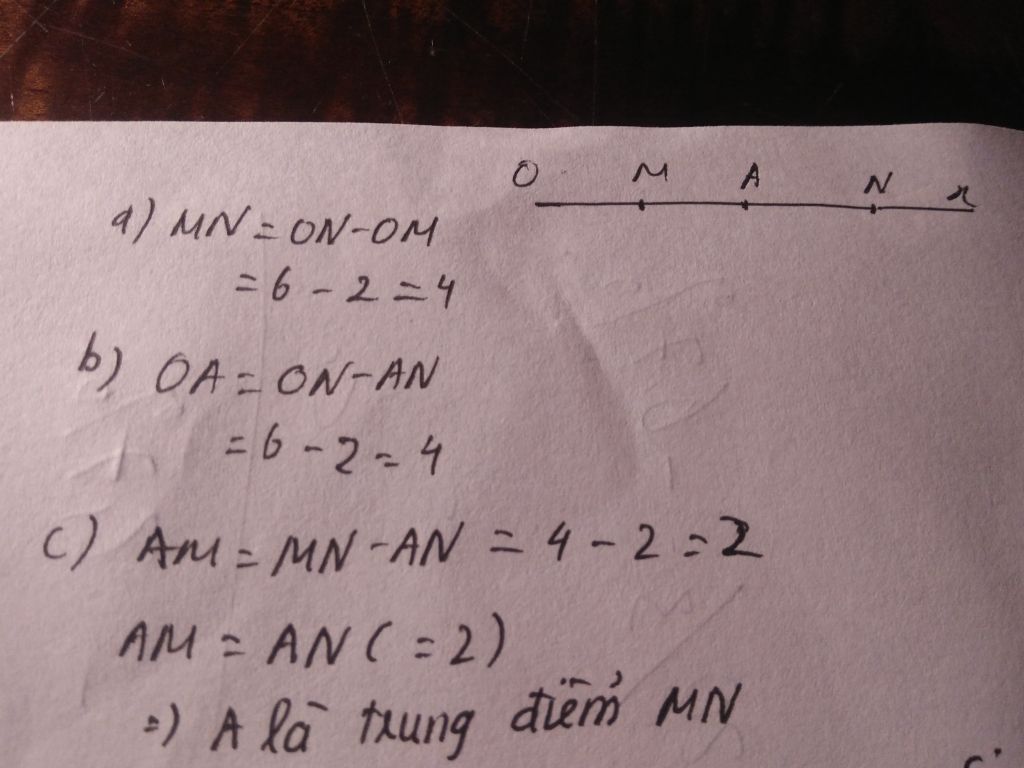 O M A N x
a) MN = ON-OM
= 6 - 2 = 4
b) OA = ON-AN
= 6 - 2 = 4
c) AM = MN - AN = 4 - 2 = 2
AM = AN ( = 2)
=) A là trung điểm MN